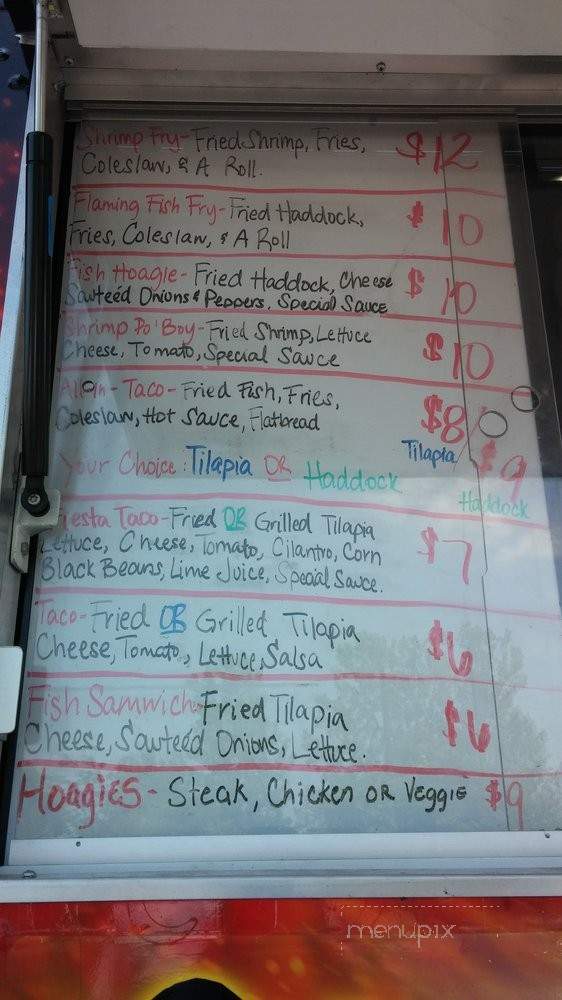 Shrimp Fry - Fried Shrimp, Fries, $12
Coleslaw, & A Roll.
Flaming Fish Fry - Fried Haddock, $10
Fries, Coleslaw, & A Roll
Fish Hoagie - Fried Haddock, Cheese $10
Sauteéd Onions & Peppers, Special Sauce
Shrimp Po'Boy - Fried Shrimp, Lettuce $10
Cheese, Tomato, Special Sauce
All-in-Taco - Fried Fish, Fries, $8
Coleslaw, Hot Sauce, Flatbread
Your Choice: Tilapia OR Haddock Tilapia/ $9 Haddock
Fiesta Taco - Fried OR Grilled Tilapia $7
Lettuce, Cheese, Tomato, Cilantro, Corn
Black Beans, Lime Juice, Special Sauce.
Taco - Fried OR Grilled Tilapia $6
Cheese, Tomato, Lettuce, Salsa
Fish Samwich - Fried Tilapia $6
Cheese, Sauteéd Onions, Lettuce.
Hoagies - Steak, Chicken OR Veggie $9
menupix